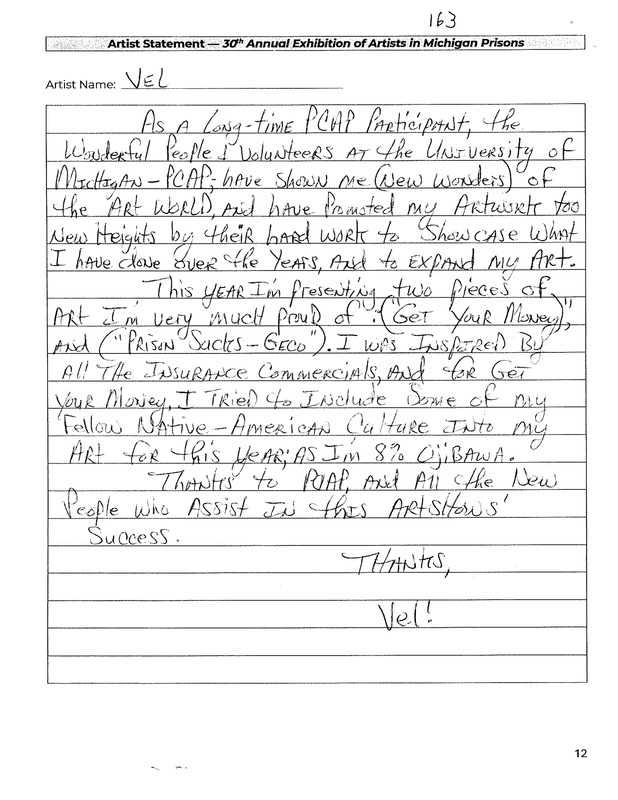 163
Artist Statement — 30th Annual Exhibition of Artists in Michigan Prisons
Artist Name: VEL
As A Long-time PCAP Participant, the
Wonderful People & Volunteers at the University of
Michigan - PCAP; have shown me (New Wonders) of
the Art World, and have Promoted my Artwork too
New Heights by their hard work to Showcase What
I have done over the Years, And to Expand my Art.
This year I'm presenting two pieces of
Art I'm very much proud of: ("Get Your Money),"
and ("Prison Sucks - Geco"). I was Inspired By
All The Insurance Commercials, And for Get
Your Money, I Tried to Include Some of my
Fellow Native-American Culture Into my
Art for this Year; As I'm 8% Ojibawa.
Thanks to PCAP, And All the New
People who Assist In this ArtShows'
Success.
Thanks,
Vel!
12